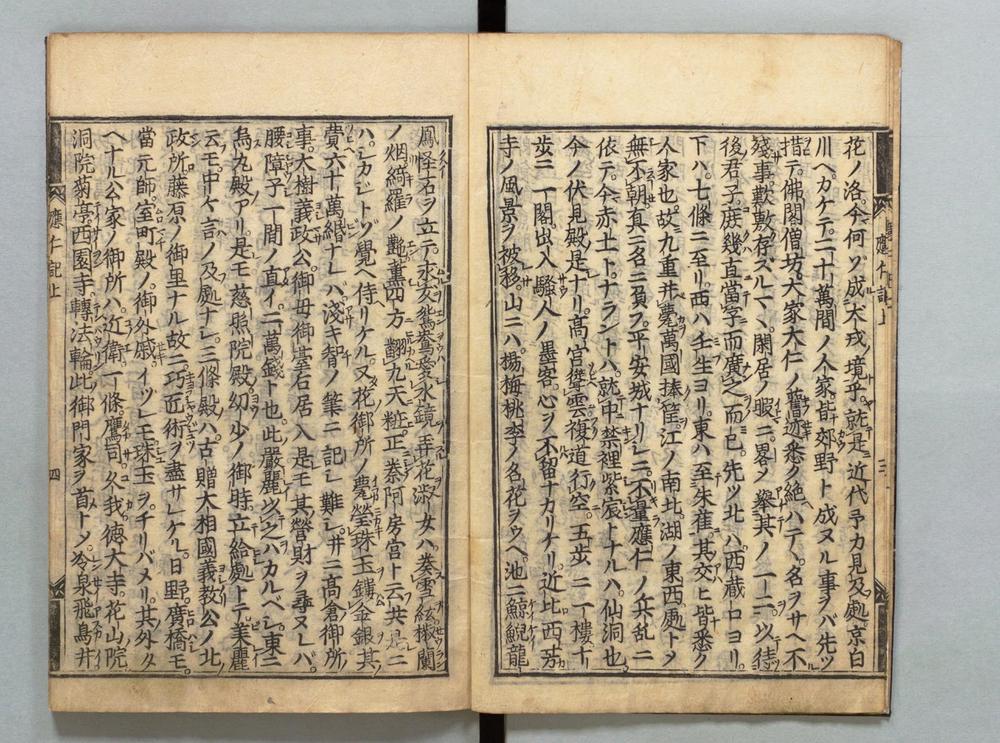 花ノ洛今何ゾ成犬戎ノ境乎就是近代予カ見及処京白
川ヘカケテ二十萬間ノ人家皆郊野ト成ヌル事ヲバ先ツ
措テ佛閣僧坊大家大仁ノ舊迹悉ク絶ハテヽ名ヲサヘ不
殘事歎敷存ズルマヽ閑居ノ暇ニ畧ノ擧其ノ一二以待
後君子庶幾直當字而廣之而已先ツ北ハ西蔵ロヨリ
下ハ七條ニ至リ西ハ壬生ヨリ東ハ至朱雀其交ヒ皆悉ク
人家也故ニ九重井甍萬國捧筐江ノ南北湖ノ東西処トメ
無不朝真ニ名ニ負フ平安城ナリシニ不量應仁ノ兵乱ニ
依テ今赤土トナラントハ就中禁裡紫辰トナルハ仙洞也
今ノ伏見殿是ナリ高官聳雲複道行空五歩ニ一樓十
歩ニ一閣出入騒人ノ墨客心ヲ不留ナカリケリ近比西芳
寺ノ風景ヲ被移山ニハ楊梅桃李ノ名花ヲウヘ池ニ鯨鯢龍
應仁記上
三
鳳怪石ヲ立テ水友鴛鴦水鏡弄花淑女ハ奏雪ノ絃椒闌
ノ烟綺羅ノ艶薫四方翻九天粧正秦阿房宮ト云共是ニ
ハシカジトゾ覺ヘ侍リケル又花御所ノ甍瑩珠玉鏤金銀其
費六十萬緡ナレハ淺キ智ノ筆ニ記シ難シ并ニ高倉御所ノ
事大樹義政公御母御臺石居入是モ其營財ヲ尋ヌレバ
腰障子一間ノ直イ二萬錢ト也此嚴麗以之ハカルベシ東ニ
烏丸殿アリ是モ慈照院殿幼少ノ御時立給処トテ美麗
云モ中ケ言ノ及処ナシ三條殿ハ古贈大相國義教公ノ北
政所藤原ノ御里ナル故ニ巧匠術ヲ盡サレケル日野廣橋モ
當元師室町殿ノ御外戚イヅレモ珠玉ヲチリバメリ其外タ
ヘナル公家ノ御所ハ近衛一條鷹司久我徳大寺花山院
洞院菊亭西園寺轉法輪此御門家ヲ首トメ冷泉飛鳥井
應仁記上
四